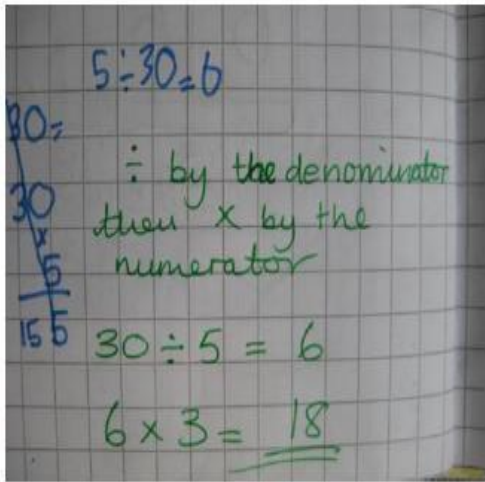 5÷30=6
30=
30
x
5
155
÷ by the denominator
then x by the
numerator
30 ÷ 5 = 6
6 x 3 = 18